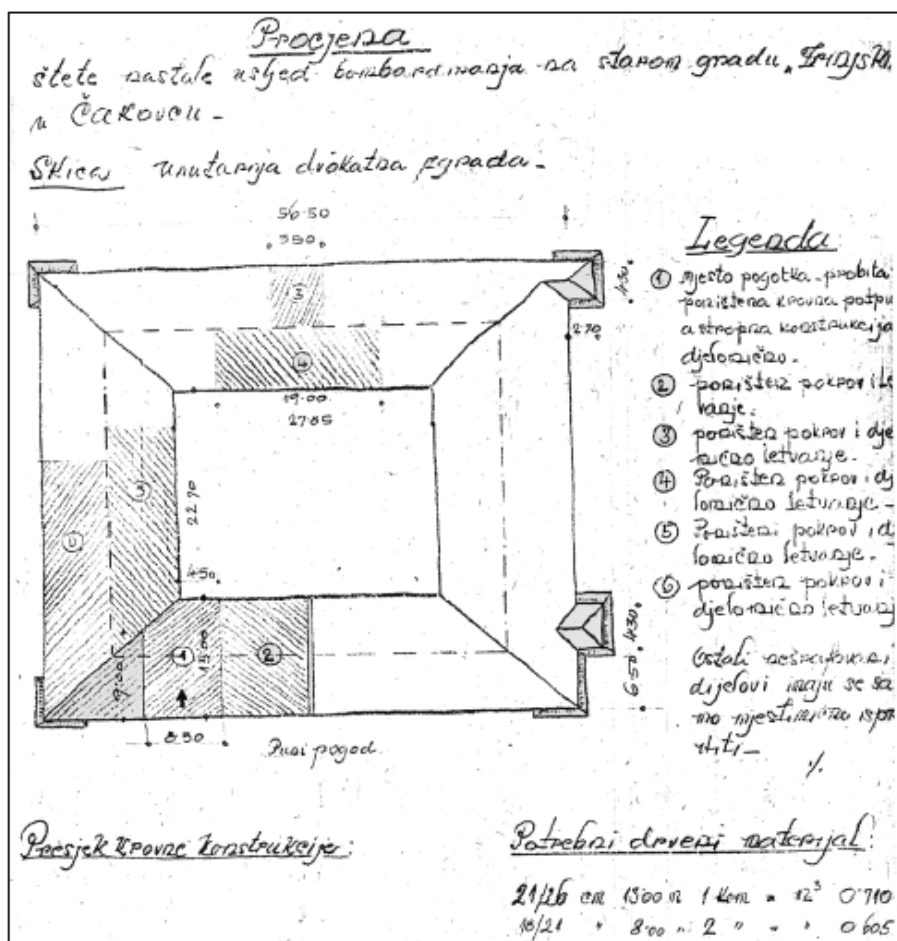 Procjena
štete nastale usljed bombardiranja na starom gradu „Zrinjski
u Čakovcu -
Skica unutarnja dvokatna zgrada -
56.50
350
5
4
19.00
27.85
4.50
2.70
3
22.70
4.50
1
13.00
2
9.00
8.50
Puni pogod.
4.30
6.50
Legenda
1 mjesto pogotka - probita
porištena krovna potpu
a stropna konstrukcija
djelomično.
2 porišten pokrov i le
tvanje.
3 porišten pokrov i dje
lomično letvanje.
4 Porišten pokrov i dj
lomično letvanje -
5 Porišteni pokrov i dj
lomično letvanje.
6 porišten pokrov i
djelomično letvanj
Ostali nešrafirani
dijelovi imaju se sa
mo mjestimično
%.
Presjek krovne konstrukcije:
Potrebni drveni materijal:
21/26 cm 1300 m 1 kom = m³ 0'710
18/21 " 8.00 " 2 " " 0605